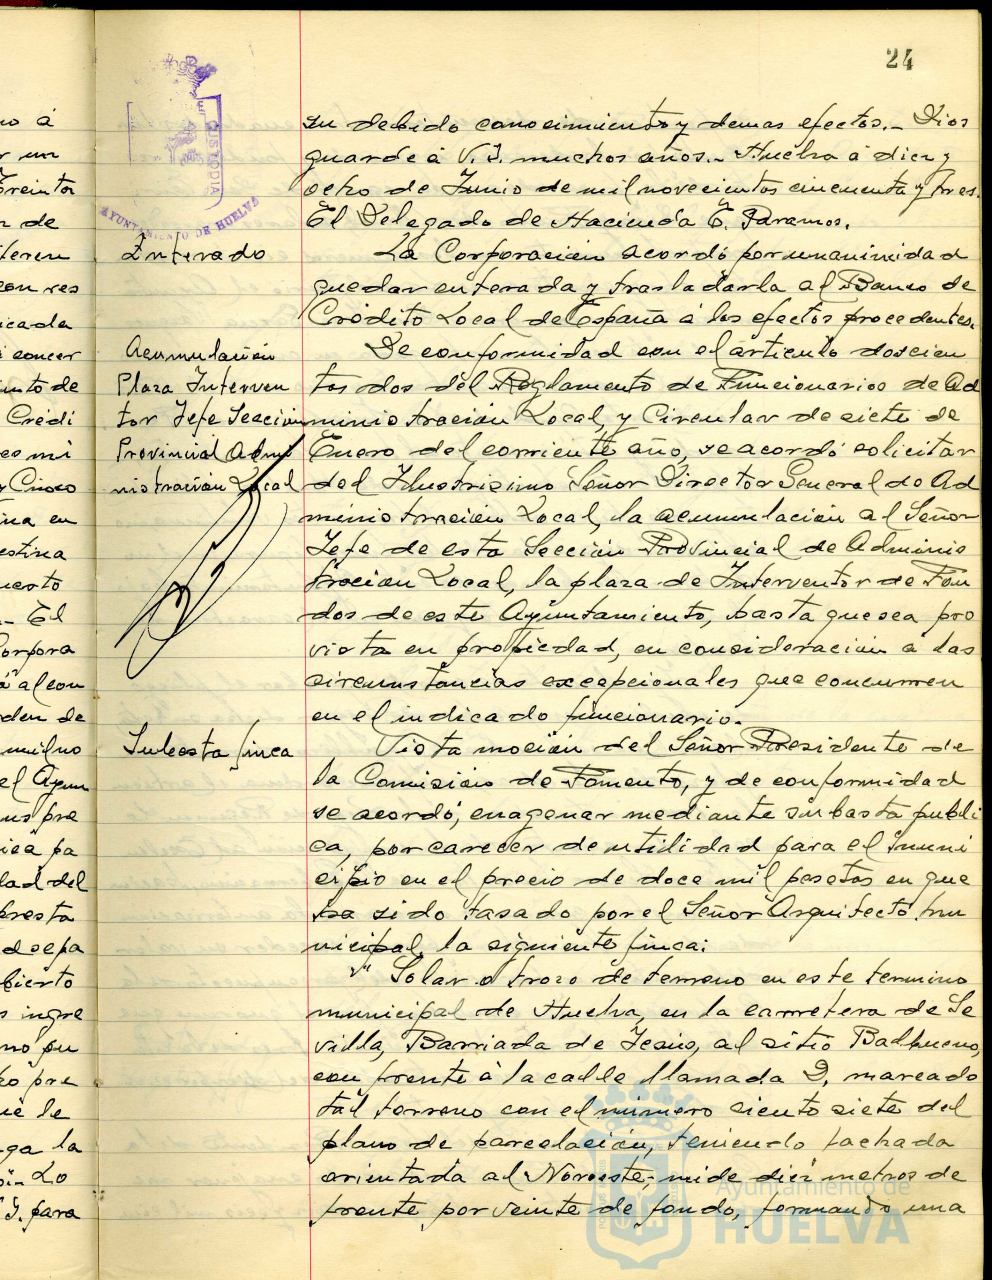 24
su debido conocimiento y demas efectos.- Dios
guarde á V.I. muchos años.- Huelva á diez y
ocho de Junio de mil novecientos cincuenta y tres.
El Delegado de Hacienda E. Paramos.
Enterado
La Corporación acordó por unanimidad
quedar enterada y trasladarla al Banco de
Crédito Local de España á los efectos procedentes.
Acumulación
Plaza Interven
tor Jefe Sección
Provincial Admi
nistración Local
De conformidad con el artículo doscien
tos dos del Reglamento de Funcionarios de Ad
ministración Local, y Circular de siete de
Enero del corriente año, se acordó solicitar
del Ilustrisimo Señor Director General de Ad
ministración Local, la acumulación al Señor
Jefe de esta Sección Provincial de Adminis
tración Local, la plaza de Interventor de Fon
dos de este Ayuntamiento, hasta que sea pro
vista en propiedad, en consideración á las
circunstancias excepcionales que concurren
en el indicado funcionario.
Subasta finca
Vista moción del Señor Presidente de
la Comisión de Fomento, y de conformidad
se acordó, enagenar mediante subasta públi
ca, por carecer de utilidad para el muni
cipio en el precio de doce mil pesetas en que
ha sido tasado por el Señor Arquitecto mu
nicipal, la siguiente finca:
" Solar o trozo de terreno en este termino
municipal de Huelva, en la carretera de Se
villa, Barriada de Jesús, al sitio Balbueno,
con frente á la calle llamada D, marcado
tal terreno con el número ciento siete del
plano de parcelación, teniendo fachada
orientada al Noroeste; mide diez metros de
frente por veinte de fondo, formando una
CUSTODIA
AYUNTAMIENTO DE HUELVA
Ayuntamiento de
HUELVA